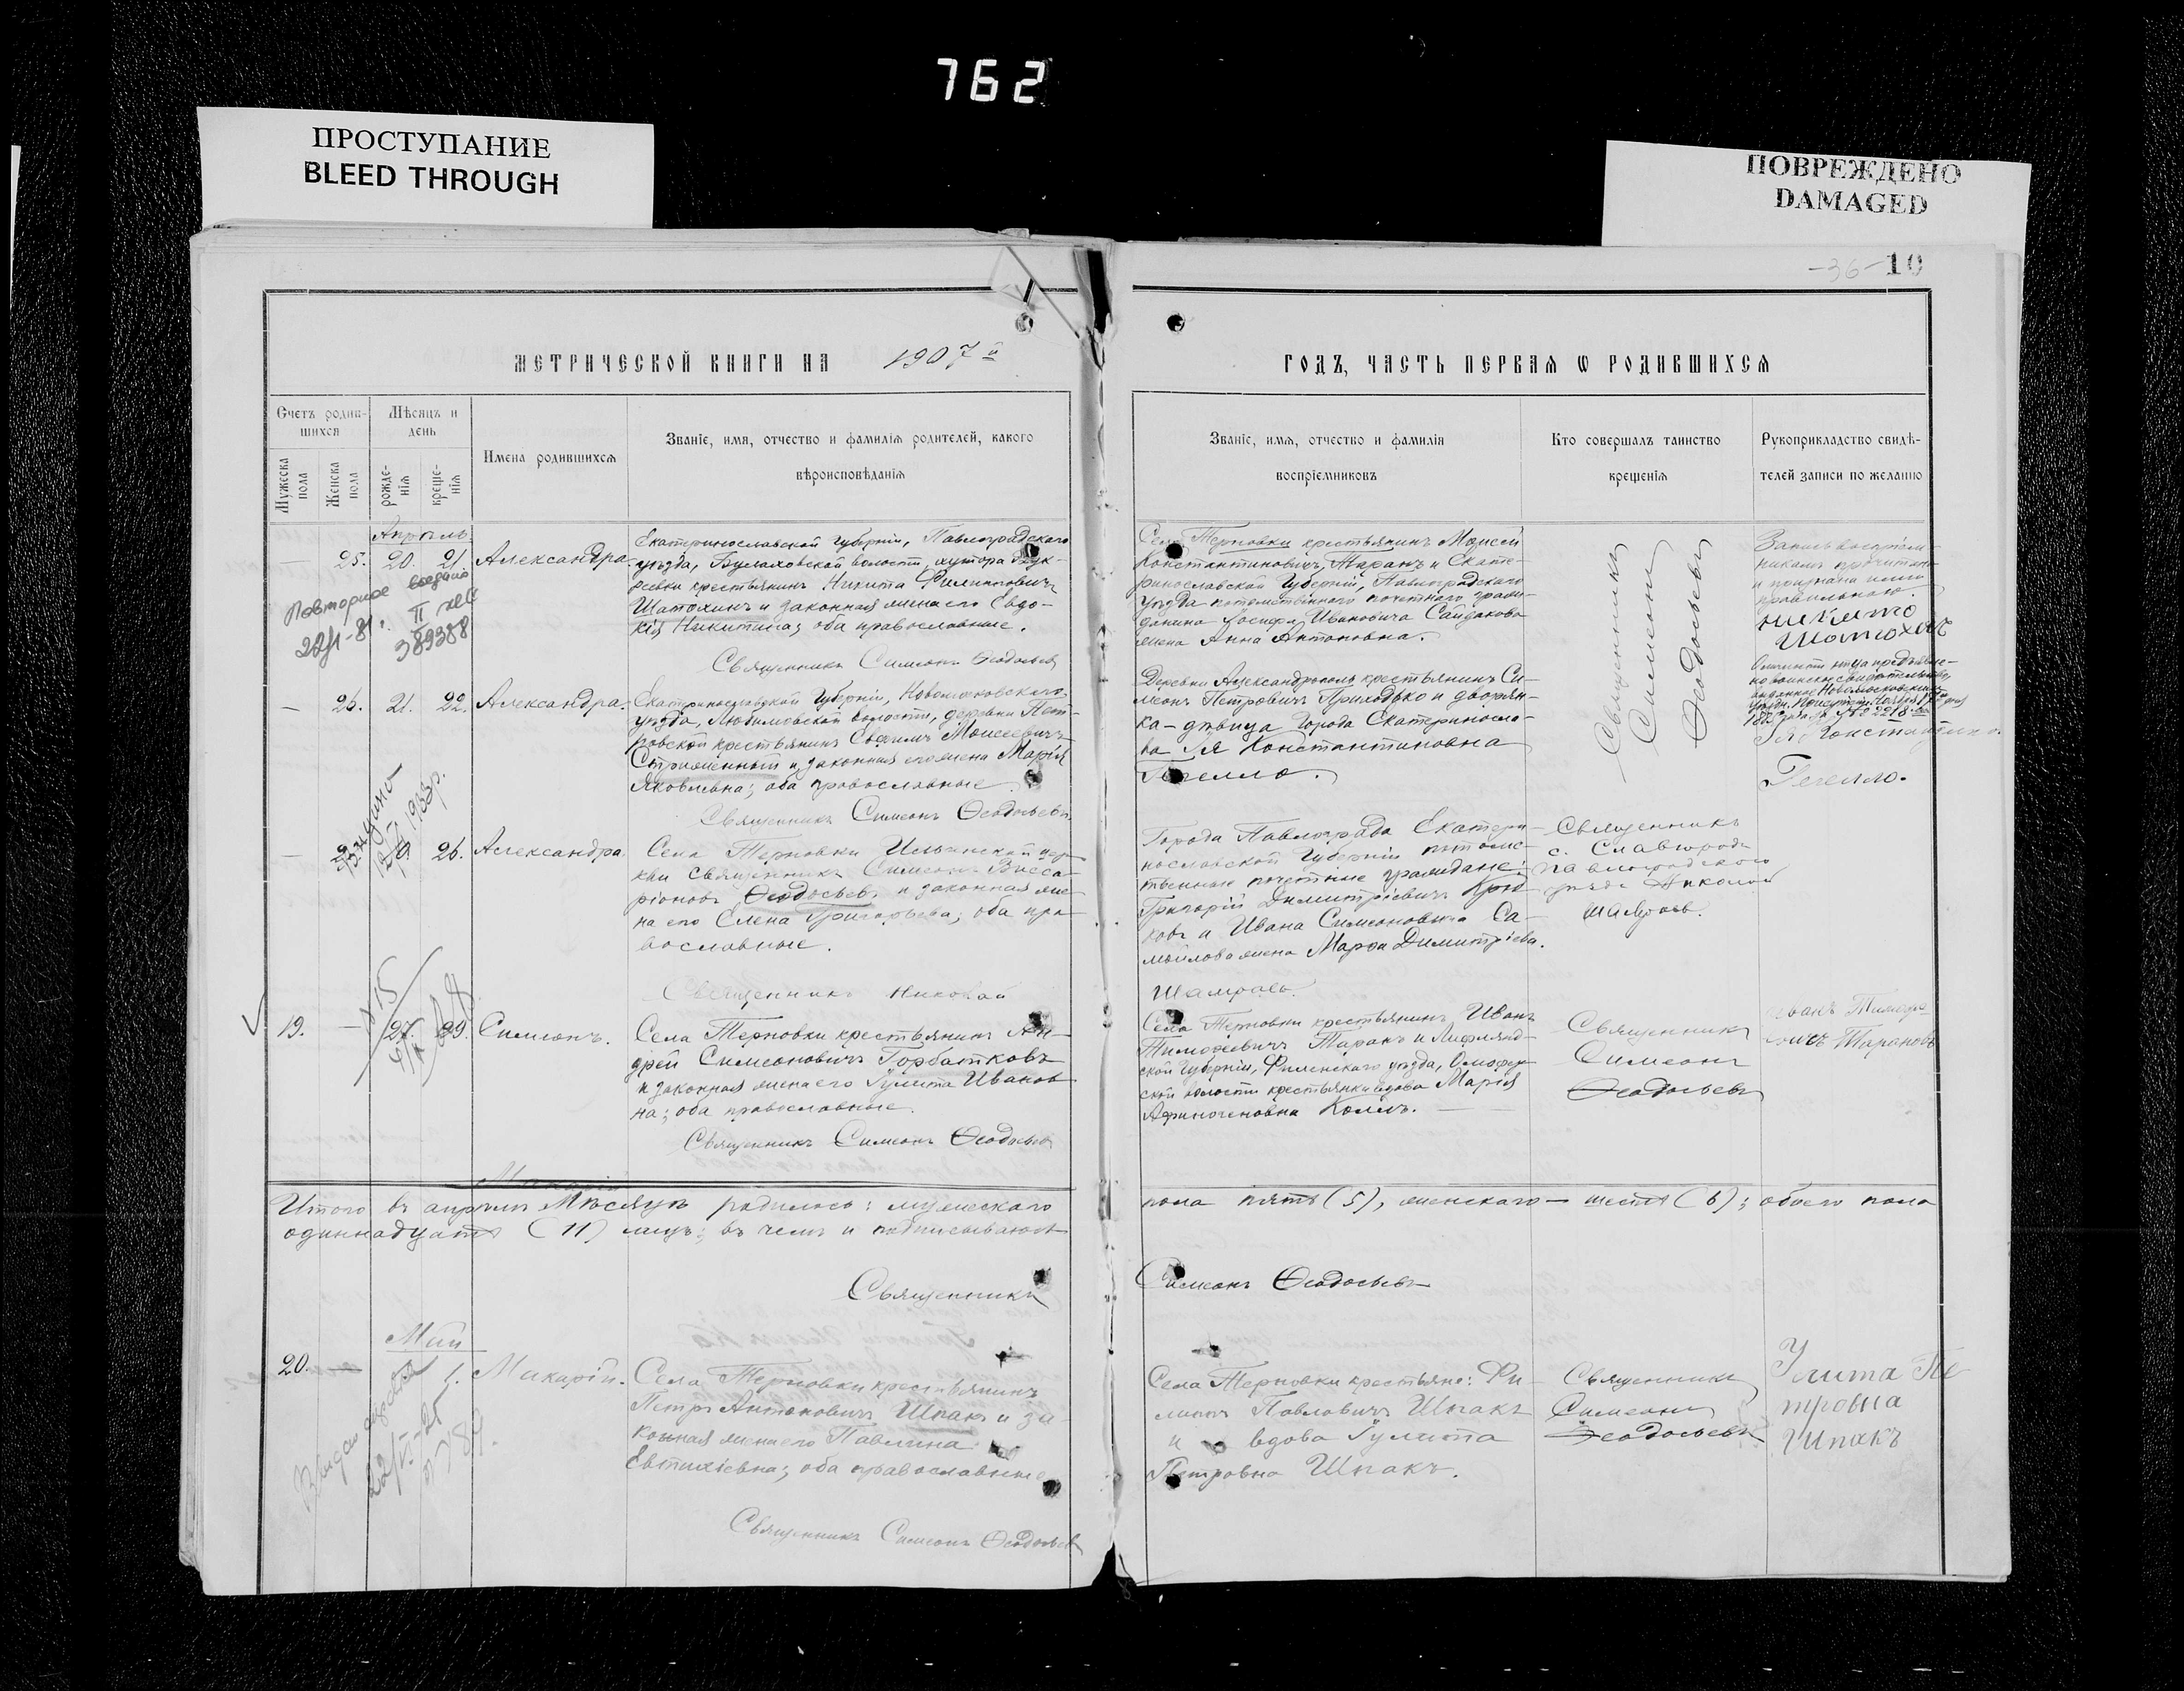 762
ПРОСТУПАНИЕ
BLEED THROUGH
ПОВРЕЖДЕНО
DAMAGED
-36- 10
МЕТРИЧЕСКОЙ КНИГИ НА 1907 й
ГОДЪ, ЧАСТЬ ПЕРВАЯ Ѡ РОДИВШИХСЯ
Счетъ родив-
шихся
Мѣсяцъ и
день
Имена родившихся
Званіе, имя, отчество и фамилія родителей, какого
вѣроисповѣданія
Мужеска
пола
Женска
пола
рожде-
нія
креще-
нія
Званіе, имя, отчество и фамилія
воспріемниковъ
Кто совершалъ таинство
крещенія
Рукоприкладство свидѣ-
телей записи по желанію
Апрѣль
— 25. 20. 21. Александра.
Екатеринославской Губерніи, Павлоградскаго
уѣзда, Булаховской волости, хутора
крестьянинъ Никита Филипповичъ
Шатохинъ и законная жена его Евдо-
кія Никитина; оба православные.
Священникъ Симеонъ Ѳеодосьевъ
Повторное выдано
22/I-81. II
389388
Села Терновки крестьянинъ Моисей
Константиновичъ Таранъ и Екате-
ринославской Губерніи, Павлоградскаго
уѣзда потомственнаго почетнаго граж-
данина Іосифа Ивановича Сайдакова
жена Анна Антоновна.
Священникъ
Симеонъ
Ѳеодосьевъ
Запись воспріем-
никамъ прочитана
и признана ими
правильною.
Никита
Шатохин
— 26. 21. 22. Александра.
Екатеринославской Губерніи, Новомосковскаго
уѣзда, Любимовской волости, деревни Пет-
ровской крестьянинъ Евѳимъ Моисеевичъ
Стриженный и законная его жена Марія
Яковлевна; оба православные.
Священникъ Симеонъ Ѳеодосьевъ
Деревни Александрополь крестьянинъ Си-
меонъ Петровичъ Приходько и дворян-
ка-дѣвица города Екатериносла-
ва Ія Константиновна
Гегелло.
№ 2218
Гегелло.
1933р.
— 26. Александра.
Села Терновки Ильинской цер-
кви священникъ Симеонъ Висса-
ріоновъ Ѳеодосьевъ и законная же-
на его Елена Григорьева; оба пра-
вославные.
Священникъ Николай
Города Павлограда Екатери-
нославской Губерніи потомс-
твенные почетные граждане:
Григорій Димитріевичъ Крю-
ковъ и Ивана Симеоновича Са-
мойлова жена Марѳа Димитріева.
Шамраевъ.
Священникъ
с. Славгорода
Павлоградского
уѣзда Николай
Шамраевъ.
19. — 27. 29. Симеонъ.
Села Терновки крестьянинъ Ан-
дрей Симеоновичъ Горбатковъ
и законная жена его Іулитта Иванов-
на; оба православные.
Священникъ Симеонъ Ѳеодосьевъ
Села Терновки крестьянинъ Иванъ
Тимоѳеевичъ Таранъ и Лифлянд-
ской Губерніи, уѣзда,
ской волости крестьянки вдова Марія
Аѳиногеновна
Священникъ
Симеонъ
Ѳеодосьевъ
Тарановъ
Итого въ апрѣлѣ мѣсяцѣ родилось: мужескаго
пола пять (5), женскаго — шесть (6); обоего пола
одиннадцать (11) лицъ; въ чемъ и подписываюсь
Священникъ
Симеонъ Ѳеодосьевъ
Май
20. — 1. Макарій.
Села Терновки крестьянинъ
Петръ Антоновичъ Шпакъ и за-
конная жена его Павлина
Евтихіевна; оба православные
Священникъ Симеонъ Ѳеодосьевъ
Села Терновки крестьяне: Фи-
липпъ Павловичъ Шпакъ
и вдова Іулитта
Петровна Шпакъ.
Священникъ
Симеонъ
Ѳеодосьевъ
Улита Пе
тровна
Шпакъ